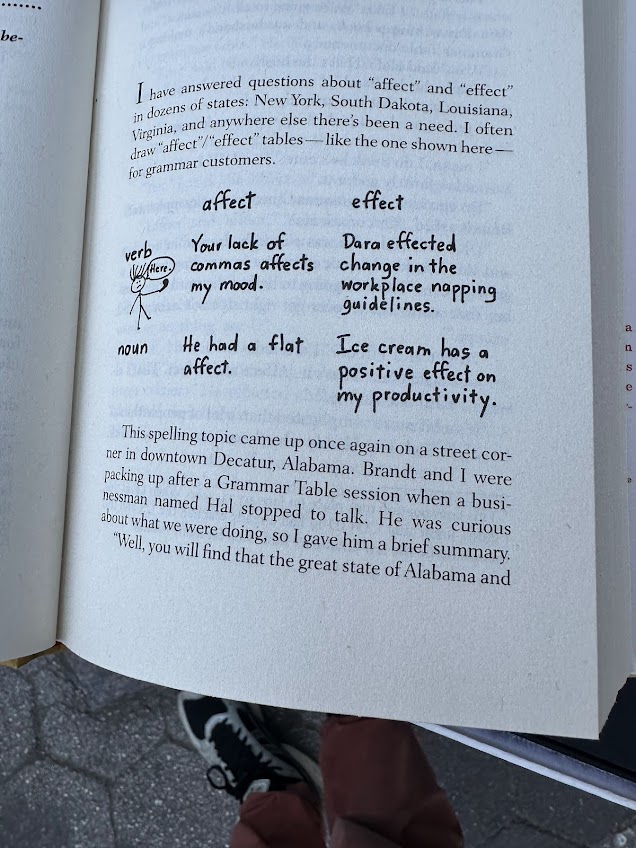 be-
I have answered questions about “affect” and “effect”
in dozens of states: New York, South Dakota, Louisiana,
Virginia, and anywhere else there’s been a need. I often
draw “affect”/“effect” tables—like the one shown here—
for grammar customers.
affect effect
verb
Here.
Your lack of
commas affects
my mood.
Dara effected
change in the
workplace napping
guidelines.
noun
He had a flat
affect.
Ice cream has a
positive effect on
my productivity.
This spelling topic came up once again on a street cor-
ner in downtown Decatur, Alabama. Brandt and I were
packing up after a Grammar Table session when a busi-
nessman named Hal stopped to talk. He was curious
about what we were doing, so I gave him a brief summary.
“Well, you will find that the great state of Alabama and
a
n
s
e